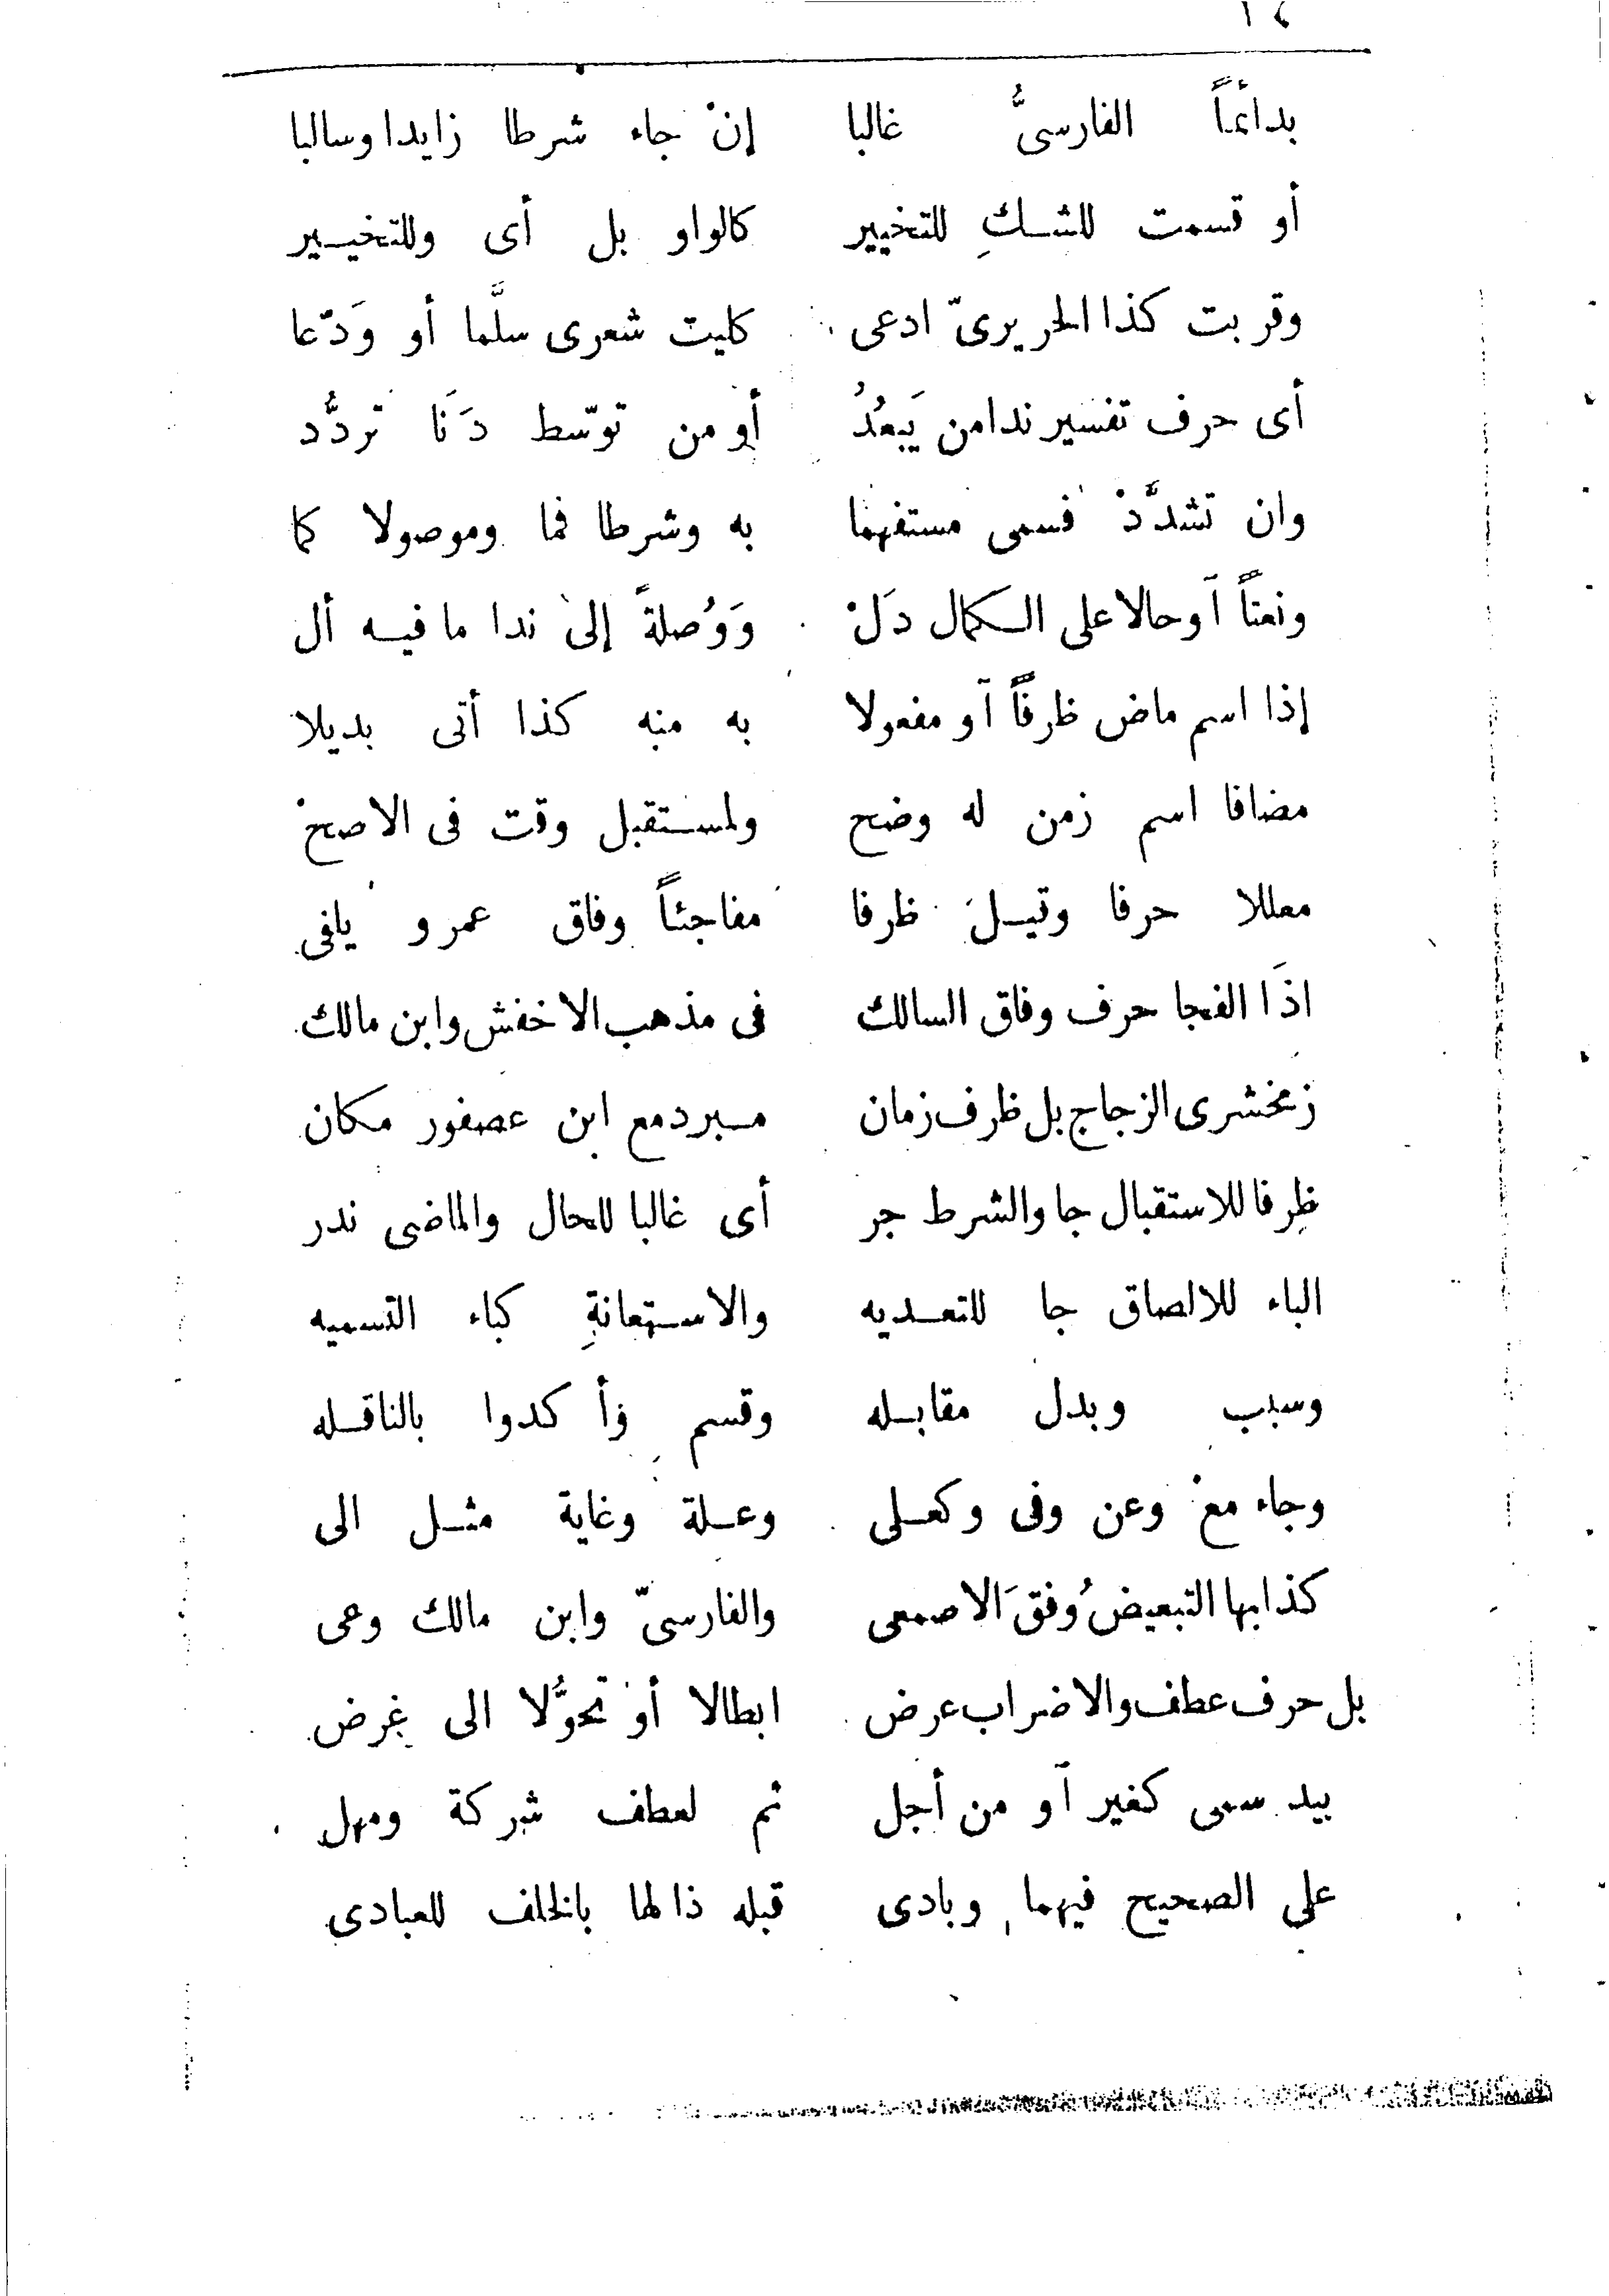 بدائمًا الفارسىُّ غالبا إنْ جاء شرطا زايدا وسالبا
أو قسمت للشكِ للتخيير كالواو بل أى وللتخيير
وقربت كذا الحريرىّ ادعى كليت شعرى سلَّما أو وَدّعا
أى حرف تفسير ندامن يَبعُدُ أو من توسّط دَنَا تردُّد
وان تشدَّدْ فسمى مستفهما به وشرطا فما وموصولا كما
ونعتاً آوحالا على الكمال دَلْ وَوُصلةً إلى ندا ما فيه أل
إذا اسم ماض ظرفاً آو مفعولا به منه كذا أتى بديلا
مضافا اسم زمن له وضح ولمستقبل وقت فى الاصحْ
معللا حرفا وقيل ظرفا مفاجئاً وفاق عمرو يلفى
اذَا الفجا حرف وفاق السالك فى مذهب الاخفش وابن مالك
زمخشرى الزجاج بل ظرف زمان مبرد مع ابن عصفور مكان
ظرفا للاستقبال جا والشرط جر أى غالبا للحال والماضى ندر
الباء للالصاق جا للتعديه والاستعانةِ كباء التسميه
وسبب وبدل مقابله وقسم وأكدوا بالناقله
وجاء معْ وعن وفى وكعلى وعلة وغاية مثل الى
كذابها التبعيضُ وفقَ الاصمعى والفارسىّ وابن مالك وعى
بل حرف عطف والاضراب عرض ابطالا أوْ تحوُّلا الى غرض
بيد سمى كغير آو من أجل ثم لعطف شركة ومهل
على الصحيح فيهما وبادى قبله ذالها بالخلف للعبادى